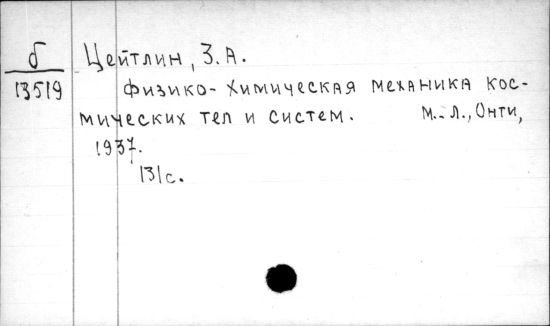 б Цейтлин, З.А.
13519 Физико-химическая механика кос-
мических тел и систем. М.-Л., Онти,
1937.
131с.